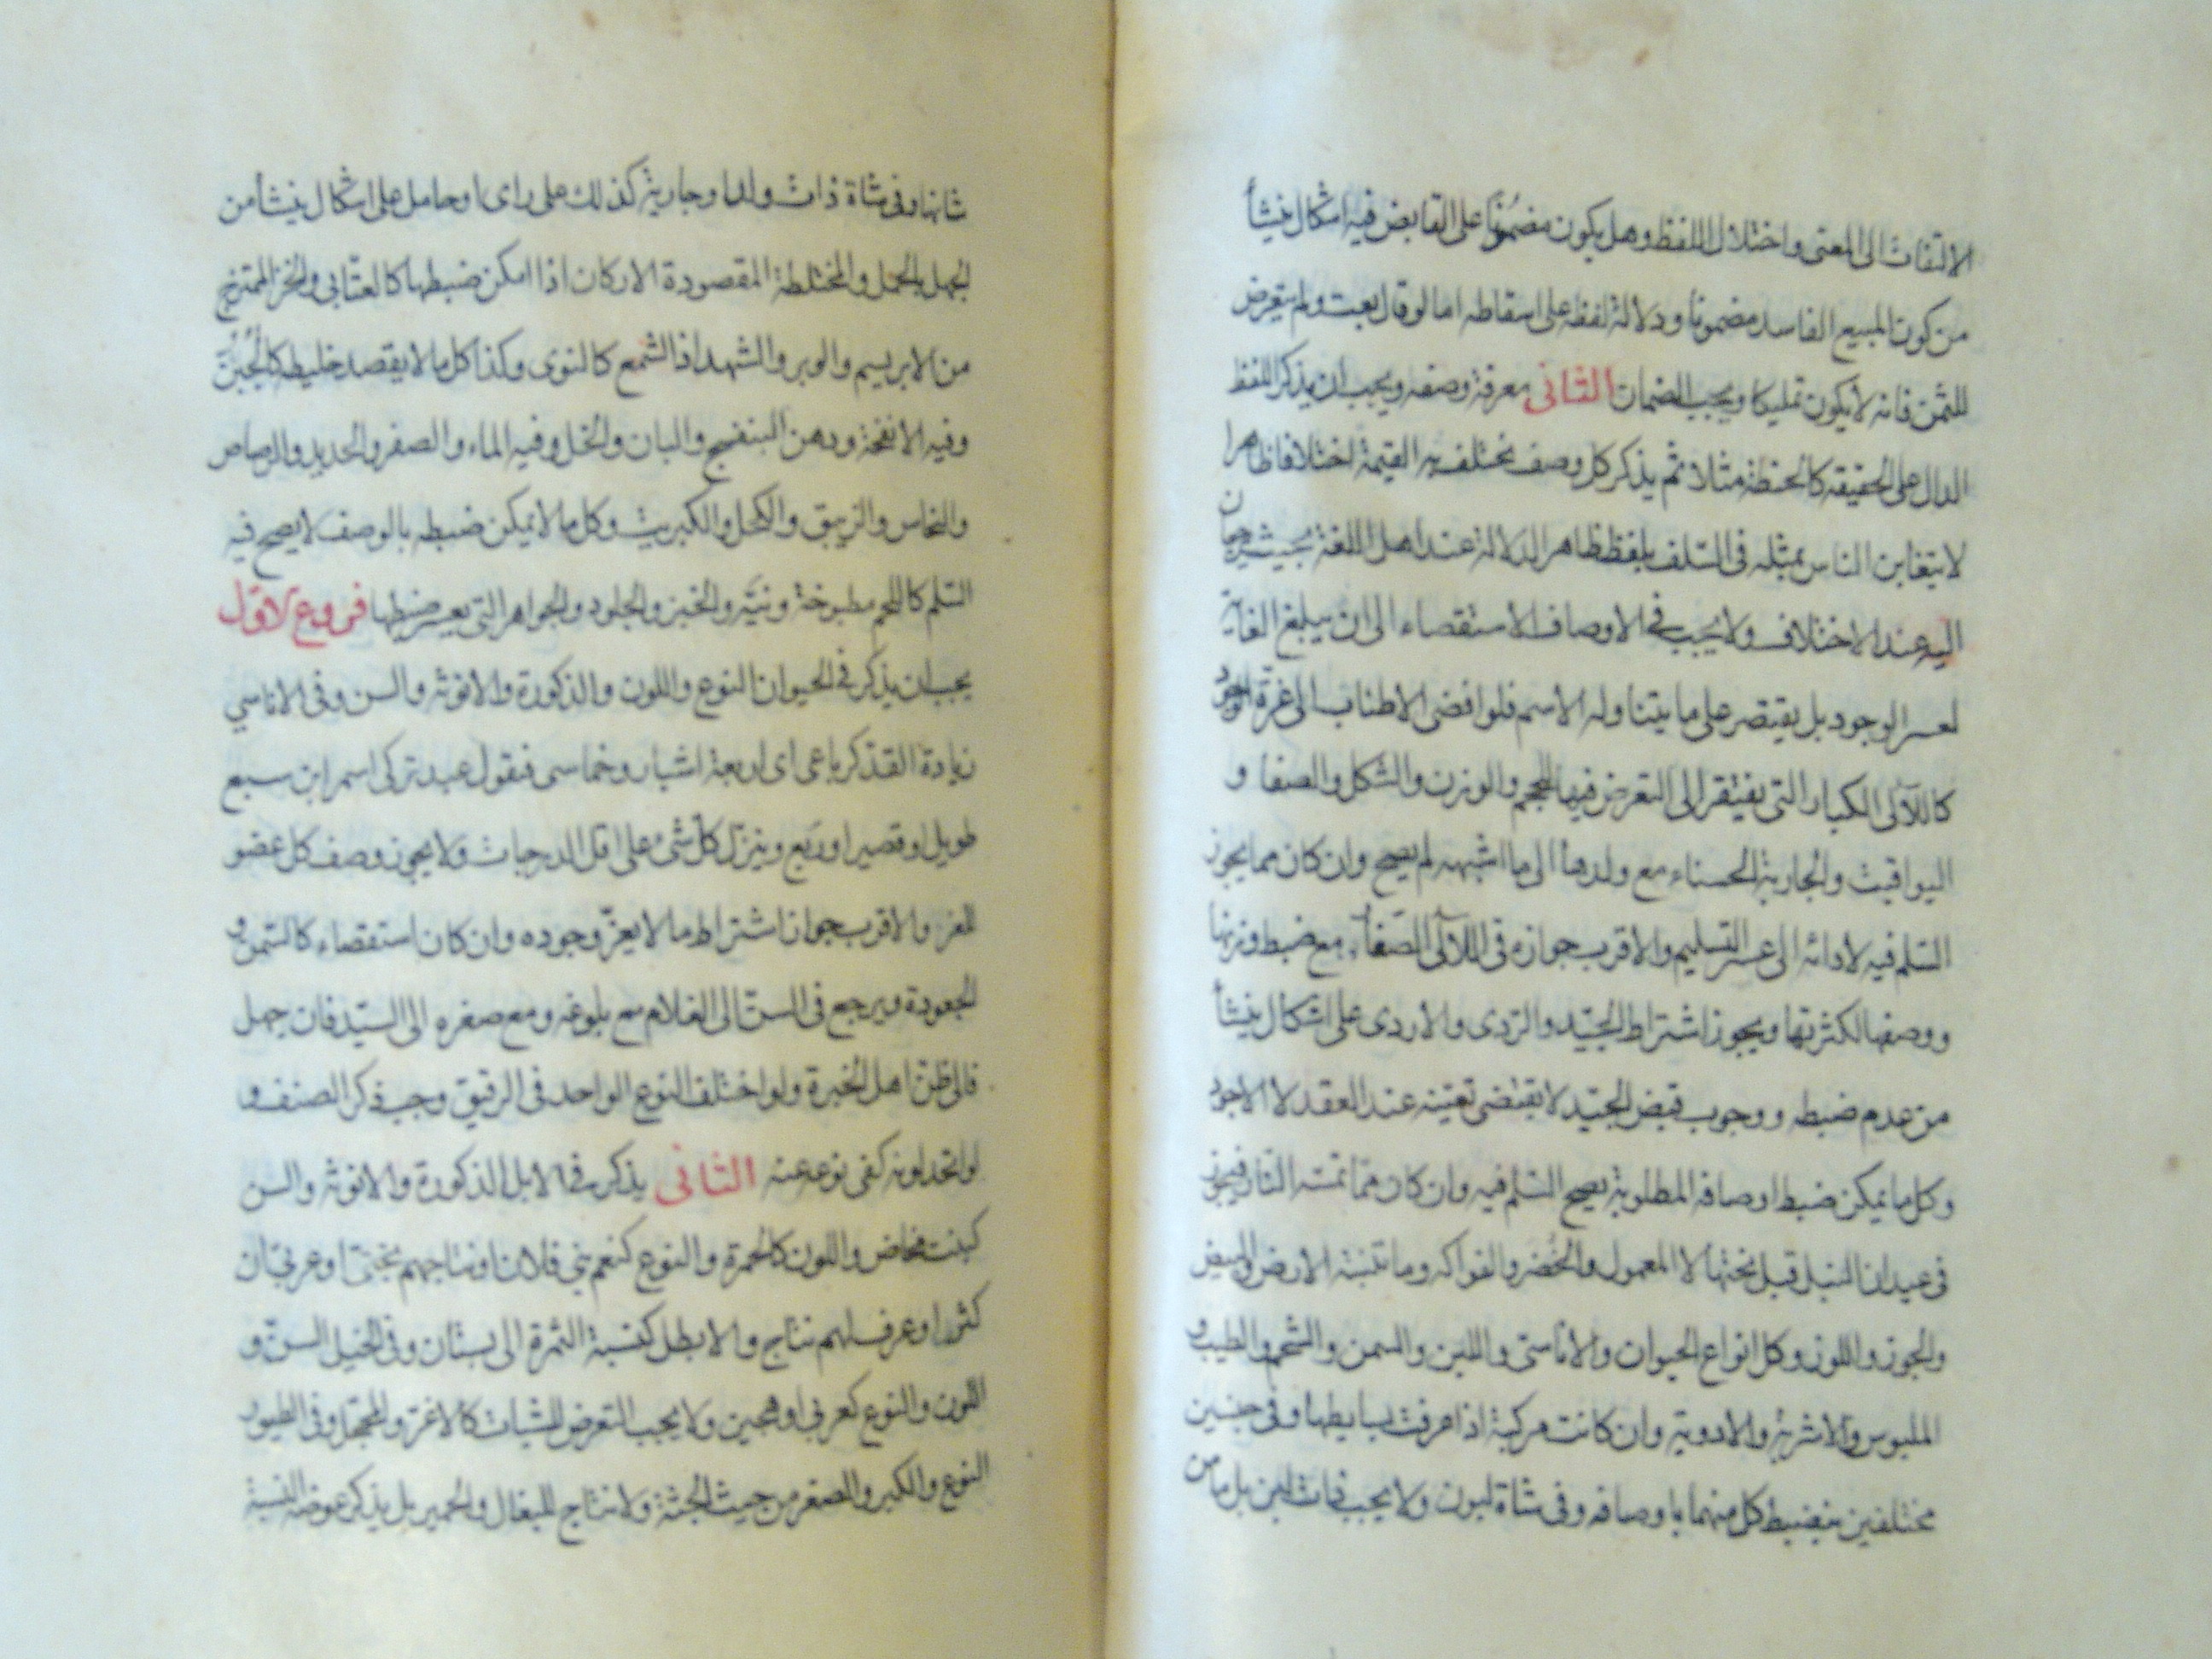 الالتفات الى المعنى واختلال اللفظ وهل يكون مضمونًا على القابض فيه اشكال ينشأ
من كون المبيع الفاسد مضمونا ودلالة لفظه على اسقاطه اما لو قال بعت ولم يتعرض
للثمن فانه لا يكون تمليكا ويجب الضمان الثانى معرفة وصفه ويجب ان يذكر اللفظ
الدال على الحقيقة كالحنطة مثلا ثم يذكر كل وصف تختلف به القيمة اختلافا ظاهرا
لا يتغابن الناس بمثله فى السلف بلفظ ظاهر الدلالة عند اهل اللغة بحيث يرجعان
اليه عند الاختلاف ولا يجب فى الاوصاف الاستقصاء الى ان يبلغ الغاية
لعسر الوجود بل يقتصر على ما يتناوله الاسم فلو افضى الاطناب الى عزة الوجود
كاللآلى الكبار التى يفتقر الى التعرض فيها للحجم والوزن والشكل والصفا و
اليواقيت والجارية الحسناء مع ولدها الى ما اشبهه لم يصح وان كان مما يجوز
السلم فيه لادائه الى عسر التسليم والاقرب جوازه فى اللآلى الصغار مع ضبط وزنها
ووصفها لكثرتها ويجوز اشتراط الجيّد والردى والاردى على اشكال ينشأ
من عدم ضبطه ووجوب قبض الجيّد لا يقتضى تعيينه عند العقد لا الاجود
وكل ما يمكن ضبط اوصافه المطلوبة يصح السلم فيه وان كان مما تمسّه النار فيجوز
فى عيدان النبل قبل نحتها لا المعمول والخضر والفواكه وما تنبته الارض والبيض
والجوز واللوز وكل انواع الحيوان والاناسى واللبن والسمن والشحم والطيب و
الملبوس والاشربة والادوية وان كانت مركبة اذا عرفت بسايطها وفى جنسين
مختلفين يضبط كل منهما باوصافه وفى شاة لبون ولا يجب ذات لبن بل ما من
شانها وفى شاة ذات ولد او جارية كذلك على راى او حامل على اشكال ينشأ من
الجهل بالحمل والمختلطة المقصودة الاركان اذا امكن ضبطها كالعتابى والخز الممتزج
من الابريسم والوبر والشهد اذ الشمع كالنوى وكذا كل ما لا يقصد خليطه كالجُبُنّ
وفيه الانفحة ودهن البنفسج والبان والخل وفيه الماء والصفر والحديد والرصاص
والنحاس والزيبق والكحل والكبريت وكل ما لا يمكن ضبطه بالوصف لا يصح فيه
السلم كاللحم مطبوخة ونيّه والخبز والجلود والجواهر التى يعسر ضبطها فروع الاول
يجب ان يذكر فى الحيوان النوع واللون والذكورة والانوثة والسن وفى الاناسي
زيادة القد كرباعى اى اربعة اشبار وخماسى فيقول عبد تركى اسمر ابن سبع
طويل او قصير او ربع وينزل كل شئ على اقل الدرجات ولا يجوز وصف كل عضو
للعز والاقرب جواز اشتراط ما لا يعزّ وجوده وان كان استقصاء كالسمن و
الجعودة ويرجع فى السنّ الى الغلام مع بلوغه ومع صغره الى السيّد فان جهل
فالى ظنّ اهل الخبرة ولو اختلف النوع الواحد فى الرقيق وجب ذكر الصنف و
لو اتحد لونه كفى نوعه عنه الثانى يذكر فى الابل الذكورة والانوثة والسن
كبنت مخاض واللون كالحمرة والنوع كنعم بني فلان او نتاجهم بختى او عربى ان
كثروا وعرف لهم نتاج والا بطل كنسبة الثمرة الى بستان وفى الخيل السنّ و
اللون والنوع كعربى او هجين ولا يجب التعرض للشيات كالاغر والمحجّل وفى الطيور
النوع والكبر والصغر من حيث الجثة ولا نتاج للبغال والحمير بل يذكر عوضه النسبة